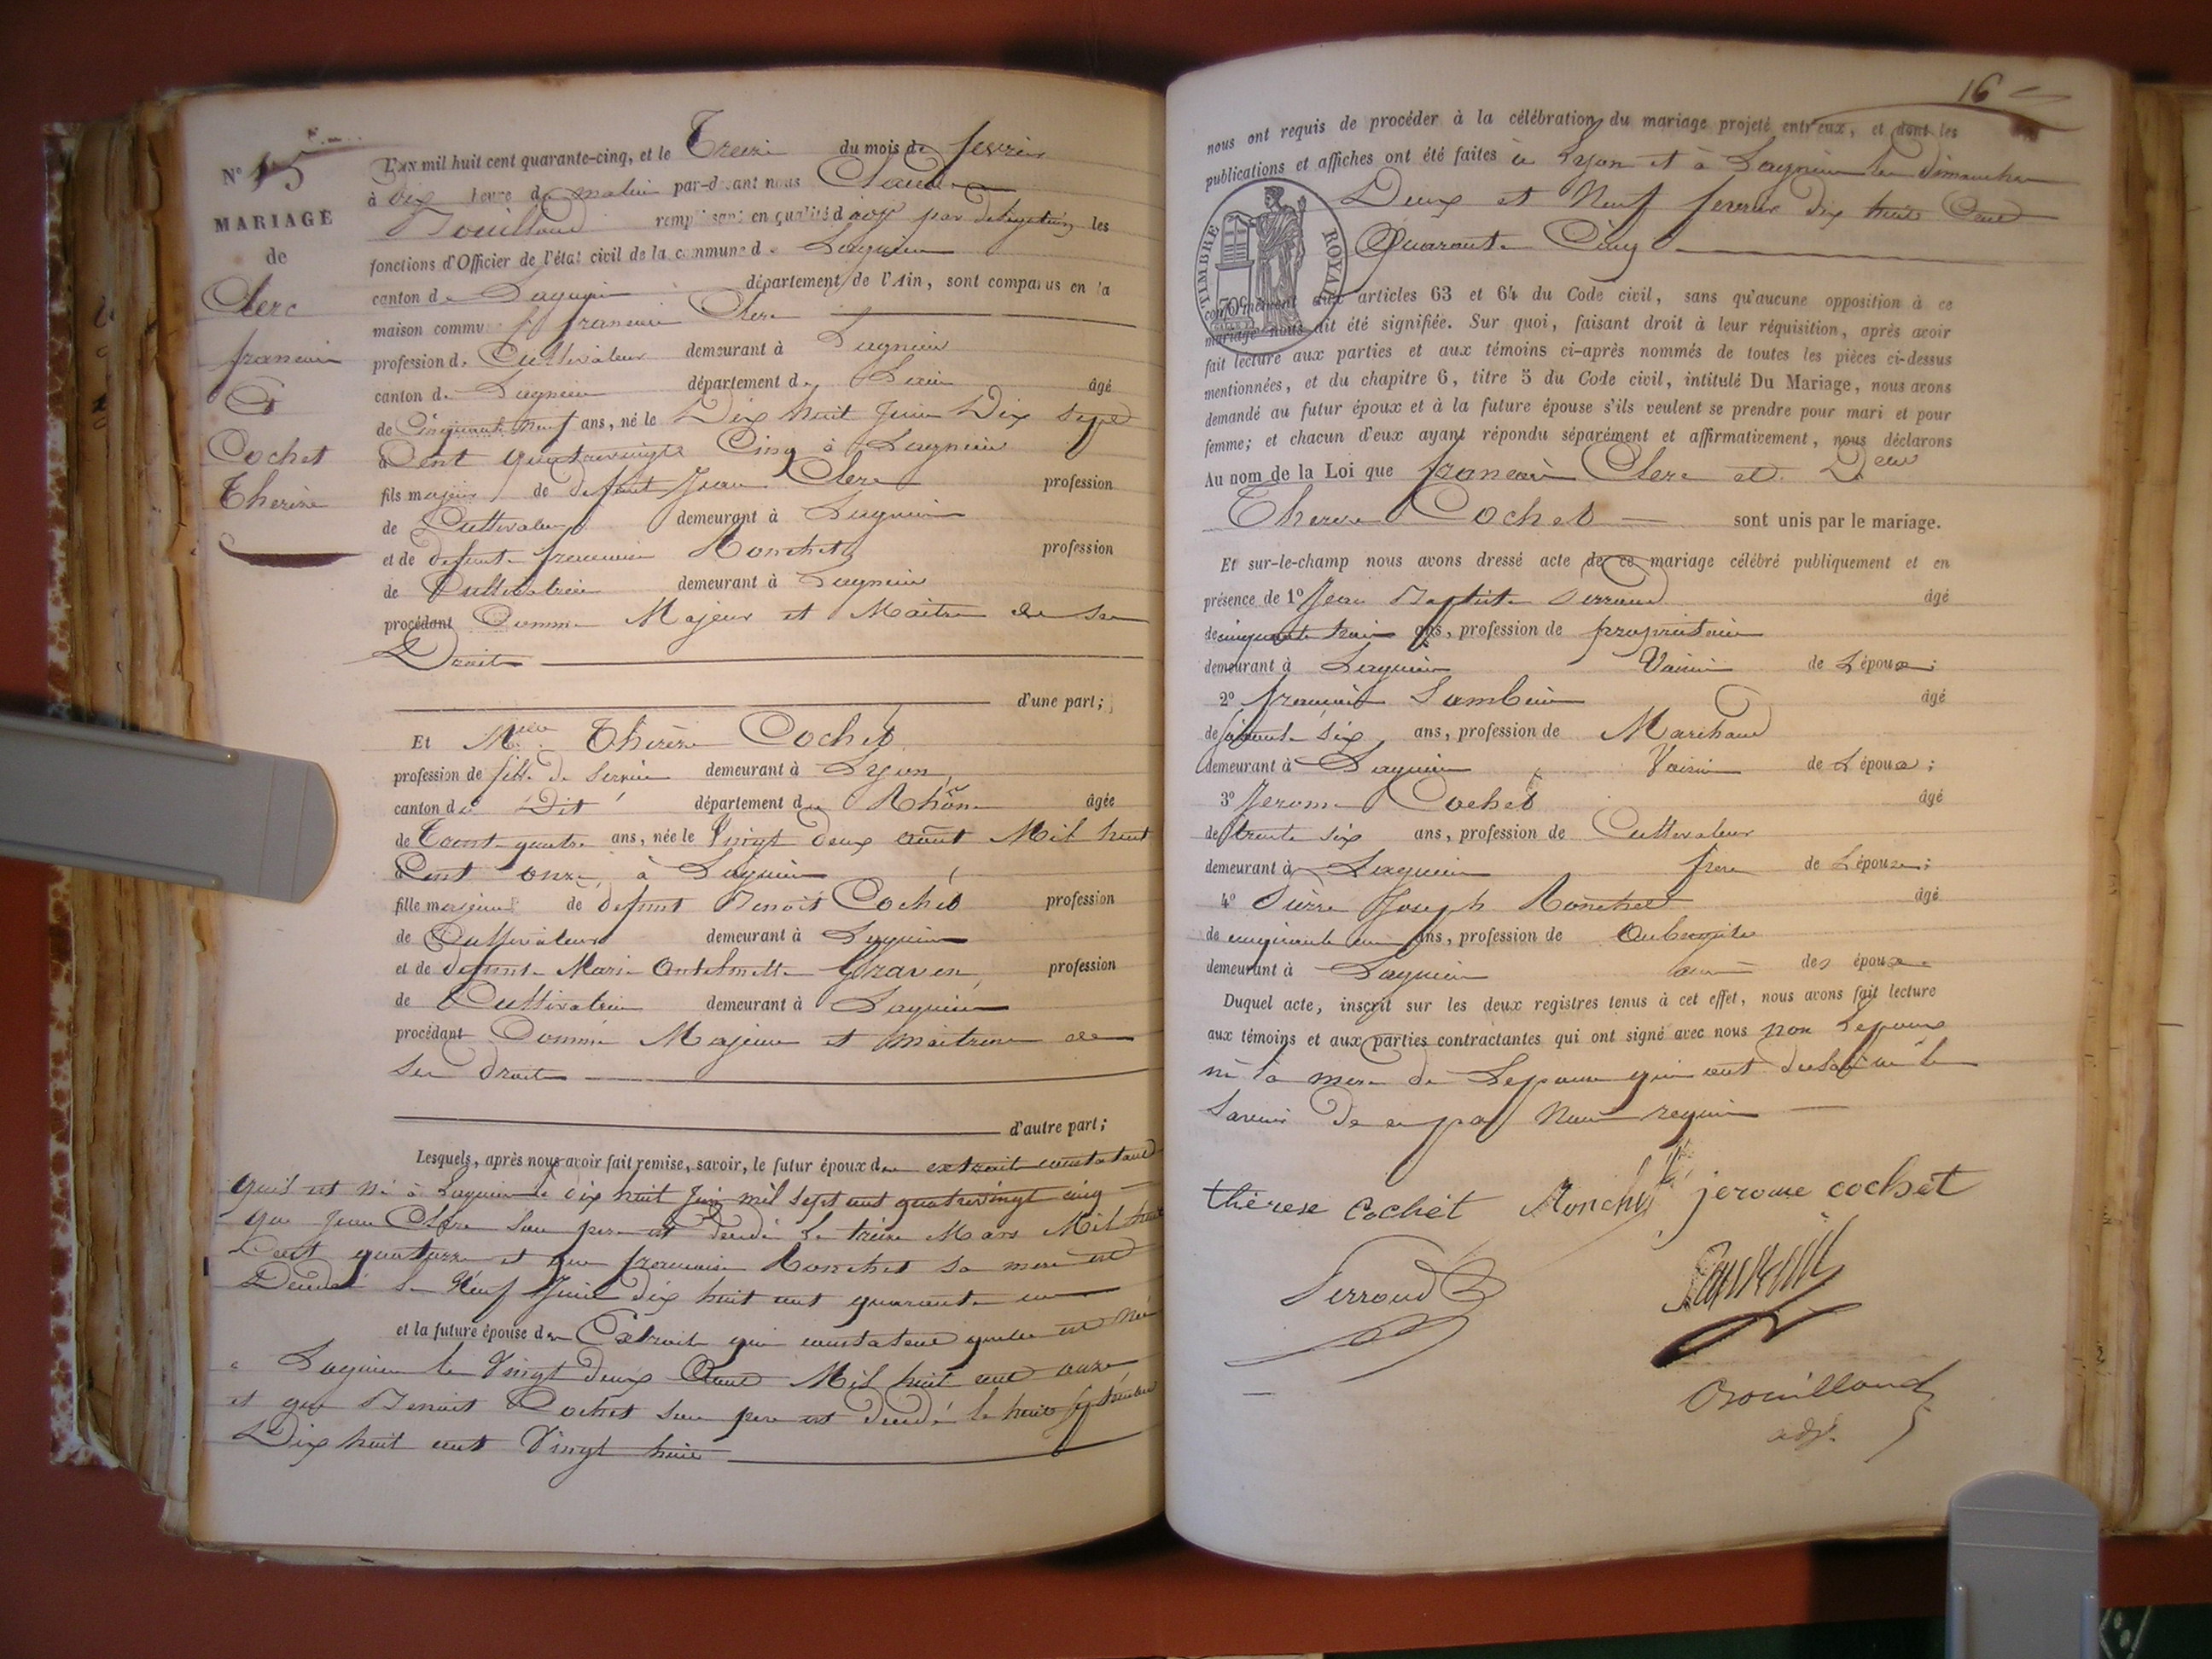 N° 15
MARIAGE
de
Clerc
francois
Et
Cochet
Therèse
L'an mil huit cent quarante-cinq, et le Treize du mois de fevrier
à dix heure du matin par-devant nous Claude
Bouilloud remplissant en qualité d'adjt par délégation les
fonctions d'Officier de l'état civil de la commune de Lagnieu
canton de Lagnieu département de l'Ain, sont comparus en la
maison commune francois Clerc
profession de Cultivateur demeurant à Lagnieu
canton de Lagnieu département de Lain âgé
de Cinquante neuf ans, né le Dix huit Juin Dix sept
Cent quatrevingts Cinq à Lagnieu
fils majeur de defunt Jean Clerc profession
de Cultivateur demeurant à Lagnieu
et de defunte francoise Ronchet profession
de Cultivatrice demeurant à Lagnieu
procédant Comme Majeur et Maitre de ses
Droits
d'une part;
Et Melle Therèse Cochet
profession de fille de Service demeurant à Lyon
canton de Dit département du Rhône âgée
de Trente quatre ans, née le Vingt deux août Mil huit
Cent onze à Lagnieu
fille majeure de defunt Benoit Cochet profession
de Cultivateur demeurant à Lagnieu
et de defunte Marie Anthelmette profession
de Cultivatrice demeurant à Lagnieu
procédant Comme Majeure et maitresse de
Ses droits
d'autre part;
Lesquels, après nous avoir fait remise, savoir, le futur époux d'un extrait constatant
quil est né à Lagnieu le dix huit Juin mil sept cent quatrevingt cinq
que Jean Clerc son pere est décédé le treize Mars Mil huit
Cent quatorze et que francoise Ronchet sa mere est
Décédée le Neuf Juin dix huit cent quarante un
et la future épouse d'un Extrait qui constatent quelle est née
a Lagnieu le Vingt deux Aout Mil huit cent onze
et que Benoit Cochet son pere est décédé le huit septembre
Dix huit cent Vingt huit
16
nous ont requis de procéder à la célébration du mariage projeté entr'eux, et dont les
publications et affiches ont été faites à Lyon et à Lagnieu les dimanches
Deux et Neuf fevrier dix huit Cent
Quarante Cinq
TIMBRE ROYAL
70c
conformément aux articles 63 et 64 du Code civil, sans qu'aucune opposition à ce
mariage nous ait été signifiée. Sur quoi, faisant droit à leur réquisition, après avoir
fait lecture aux parties et aux témoins ci-après nommés de toutes les pièces ci-dessus
mentionnées, et du chapitre 6, titre 5 du Code civil, intitulé Du Mariage, nous avons
demandé au futur époux et à la future épouse s'ils veulent se prendre pour mari et pour
femme; et chacun d'eux ayant répondu séparément et affirmativement, nous déclarons
Au nom de la Loi que francois Clerc et Delle
Therese Cochet sont unis par le mariage.
Et sur-le-champ nous avons dressé acte de ce mariage célébré publiquement et en
présence de 1° Jean Baptiste Perroud âgé
de cinquante trois ans, profession de proprietaire
demeurant à Lagnieu Voisin de Lépoux;
2° francois âgé
de six ans, profession de Marchand
demeurant à Lagnieu Voisin de Lépoux;
3° Jerome Cochet âgé
de trente six ans, profession de Cultivateur
demeurant à Lagnieu frere de Lépouse;
4° Pierre Joseph Ronchet âgé
de cinquante un ans, profession de Aubergiste
demeurant à Lagnieu ami des époux
Duquel acte, inscrit sur les deux registres tenus à cet effet, nous avons fait lecture
aux témoins et aux parties contractantes qui ont signé avec nous non Lepoux
ni la mere de Lepouse qui ont declaré ne le
Savoir De ce par Nous requis
thérese cochet Ronchet jerome cochet
Perroud
Bouilloud
adjt.